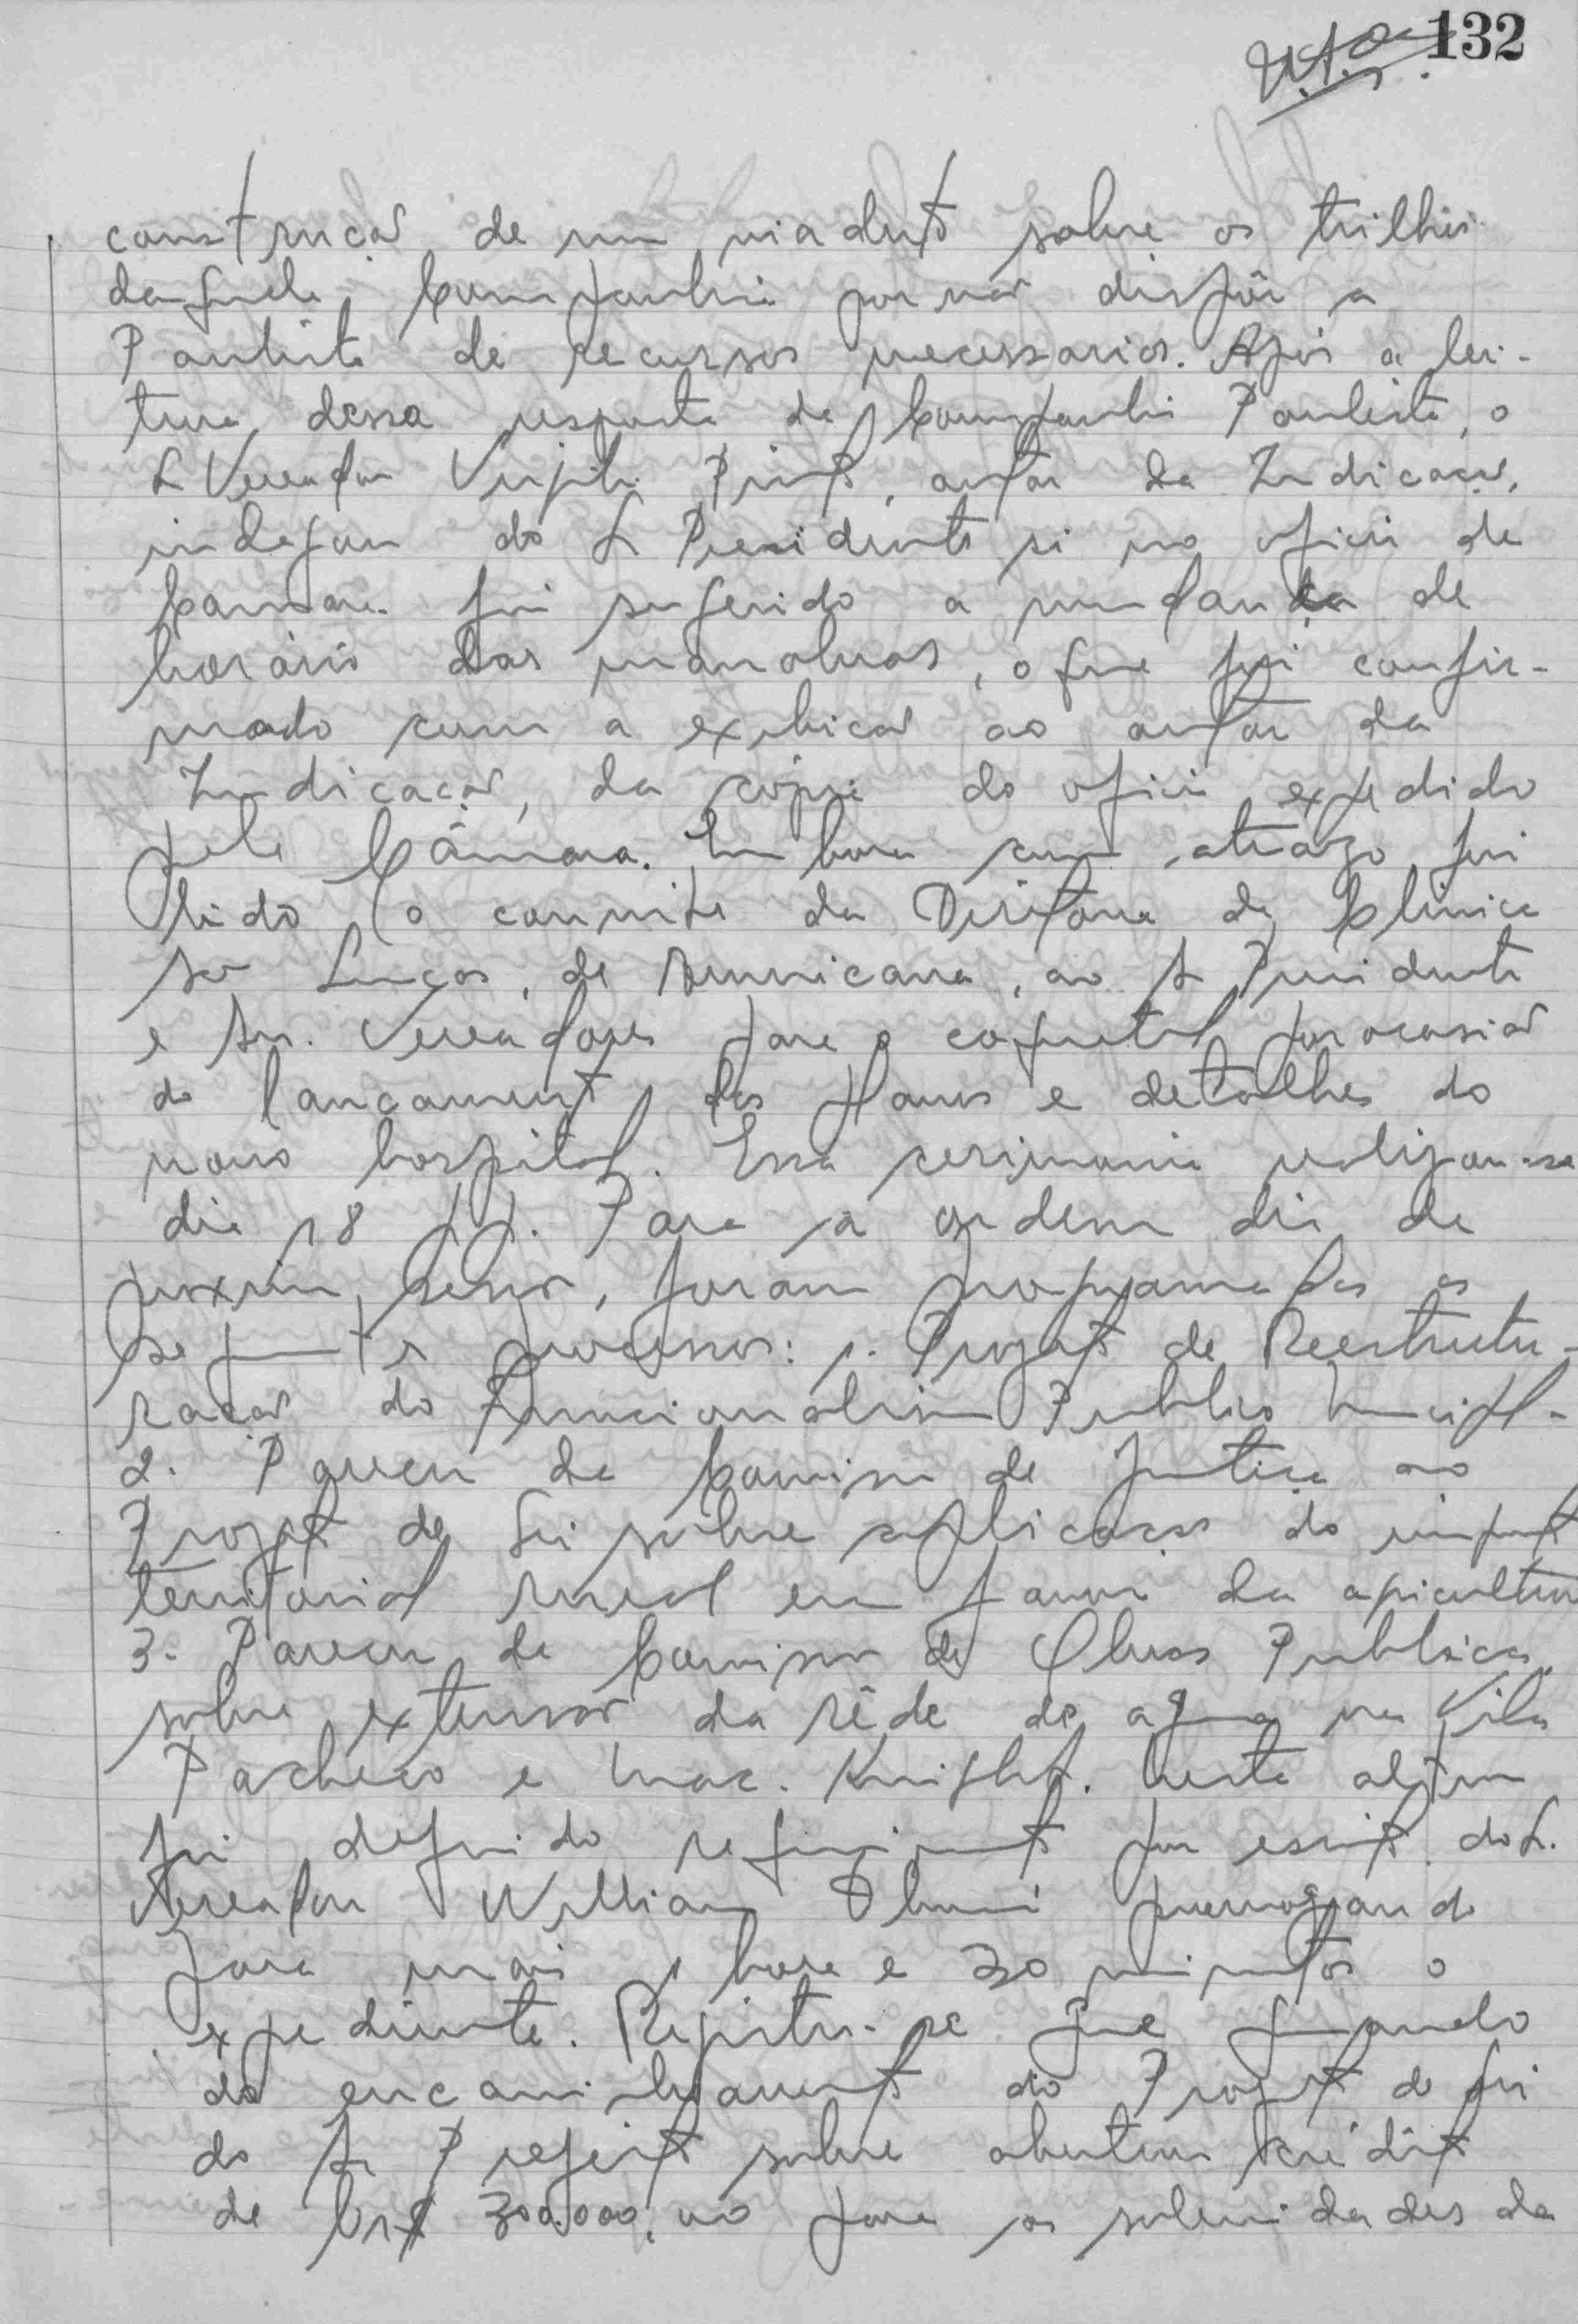 132
construção de um viaduto sobre os trilhos
daquela Companhia por não dispôr a
Paulista de recursos necessarios. Após a lei-
tura dessa resposta da Companhia Paulista, o
Sr Vereador Virgilio Pinto, autor da Indicação,
indagou do Sr Presidente si no oficio da
Camara foi sugerido a mudança de
horário das manobras, o que foi confir-
mado com a exibição ao autor da
Indicação, da cópia do oficio expedido
pela Câmara. Embora com atrazo foi
lido o convite da Diretoria da Clinica
São Lucas, de Americana, ao Sr Presidente
e Srs. Vereadores para o coquetel por ocasião
do lançamento dos planos e detalhes do
novo hospital. Essa cerimonia realizou-se
dia 18 pp. Para a ordem dia da
proxima sessão, foram programados os
seguintes processos: 1. Projeto de Reestrutu-
ração do Funcionalismo Publico Municipal-
2. Parecer da Comissão de Justiça ao
Projeto de Lei sobre aplicação do imposto
territorial rural em favor da apicultura
3. Parecer da Comissão de Obras Publicas,
sobre extensão da rêde de agua na Vila
Pacheco e Mac. Knight. Nesta altura
foi deferido requerimento por escrito do Sr.
Vereador Willian prorrogando
para mais 1 hora e 30 minutos o
expediente. Registra-se que quando
do encaminhamento do Projeto de Lei
do Sr Prefeito sobre abertura crédito
de Cr$ 300.000,00 para as solenidades da